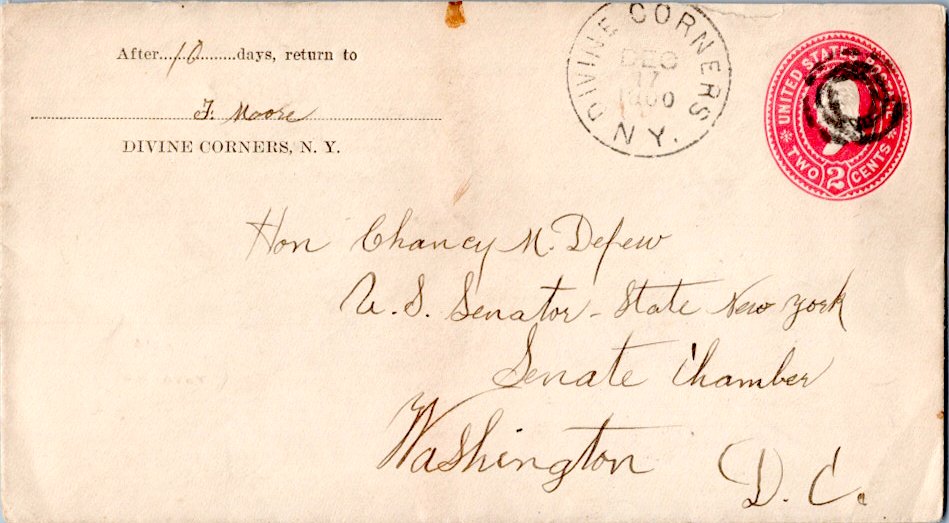 After....10....days, return to
F. Moore
DIVINE CORNERS, N. Y.
DIVINE CORNERS
DEC
17
1900
N.Y.
UNITED STATES POSTAGE
TWO 2 CENTS
Hon Chancy M. Depew
U. S. Senator - State New York
Senate Chamber
Washington D. C.